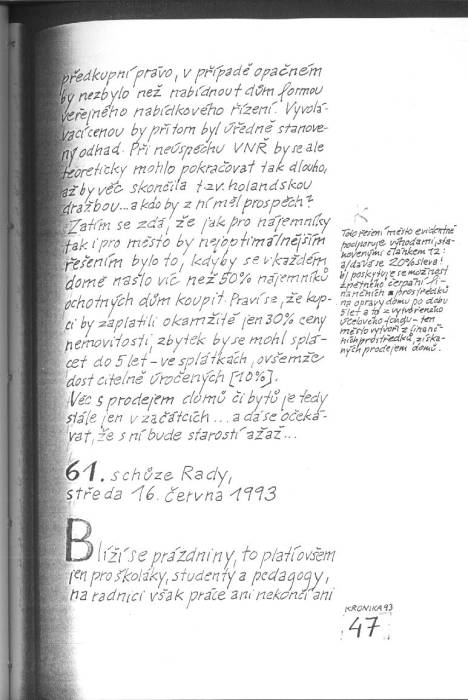 předkupní právo, v případě opačném
by nezbylo než nabídnout dům formou
veřejného nabídkového řízení. Vyvolá-
vací cenou by přitom byl úředně stanove-
ný odhad. Při neúspěchu VNŘ by se ale
teoreticky mohlo pokračovat tak dlouho,
až by věc skončila t.zv. holandskou
dražbou...a kdo by z ní měl prospěch?
Zatím se zdá, že jak pro nájemníky
tak i pro město by nejoptimálnějším
řešením bylo to, kdyby se v každém
domě našlo víc než 50% nájemníků
ochotných dům koupit. Praví se, že kup-
ci by zaplatili okamžitě jen 30% ceny
nemovitosti, zbytek by se mohl splá-
cet do 5 let - ve splátkách, ovšemže
dost citelně úročených [10%].
Věc s prodejem domů či bytů je tedy
stále jen v začátcích ... a dá se očeká-
vat, že s ní bude starostí ažaž...
Toto řešení město evidentně
podporuje výhodami, sta-
novenými článkem 12:
a/ dává se 20% sleva!
b/ poskytuje se možnost
zpětného čerpání fi-
nančních prostředků
na opravy domu po dobu
5 let a to z vytvořeného
účelového fondu - ten
město vytvoří z finanč-
ních prostředků, získa-
ných prodejem domů.
61. schůze Rady,
středa 16. června 1993
Blíží se prázdniny, to platí ovšem
jen pro školáky, studenty a pedagogy,
na radnici však práce ani nekončí ani
KRONIKA 93
47